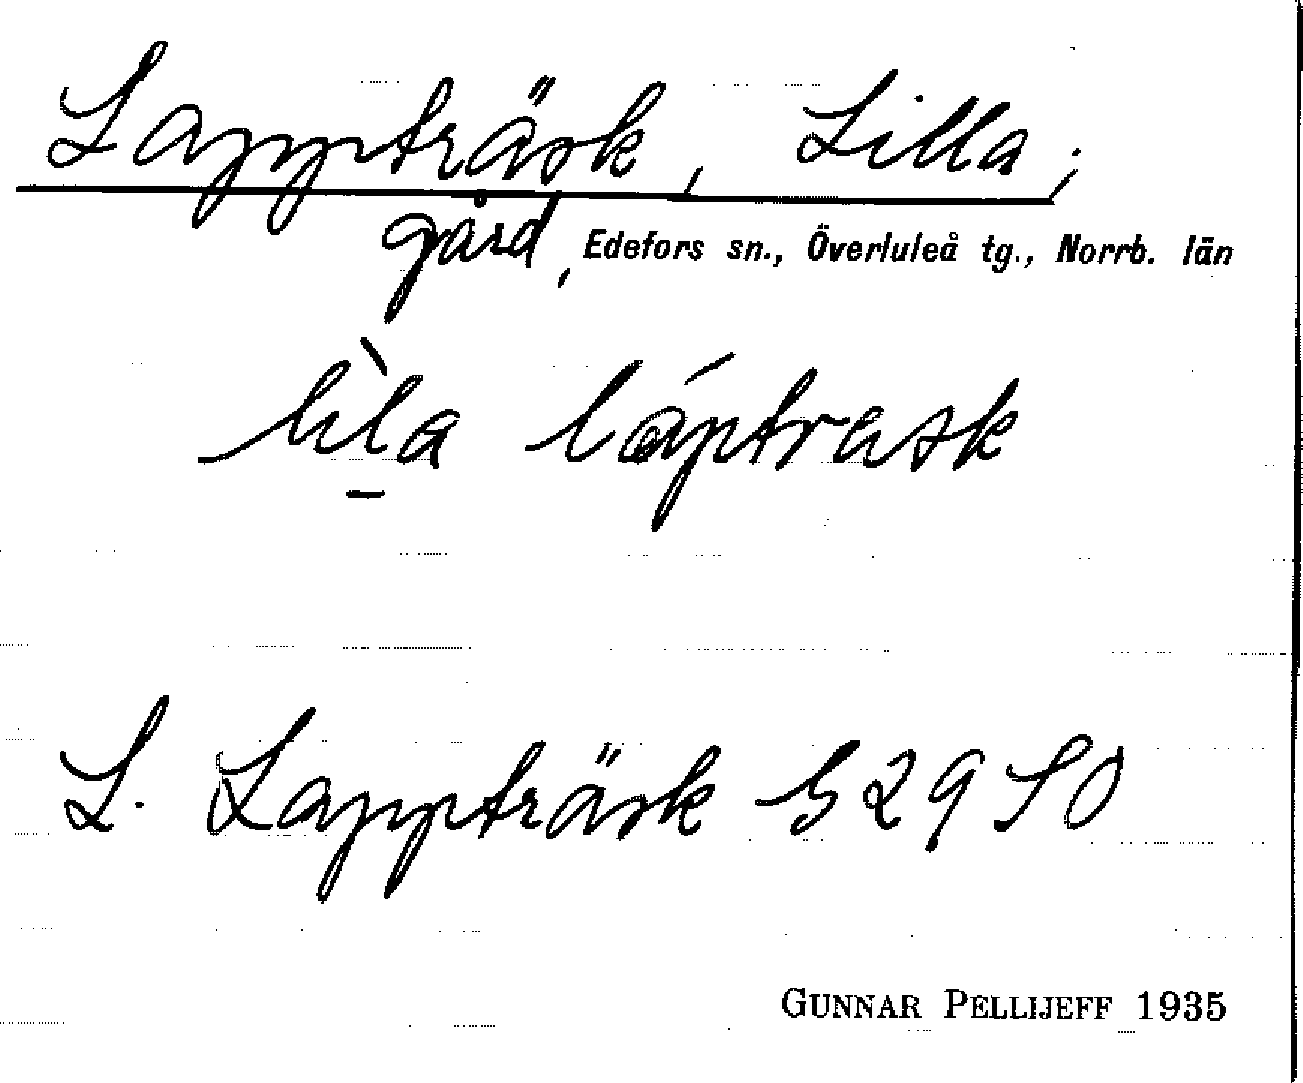 Lappträsk, Lilla;
gård, Edefors sn., Överluleå tg., Norrb. län
lìla láptrask
L. Lappträsk b 29 SO
GUNNAR PELLIJEFF 1935